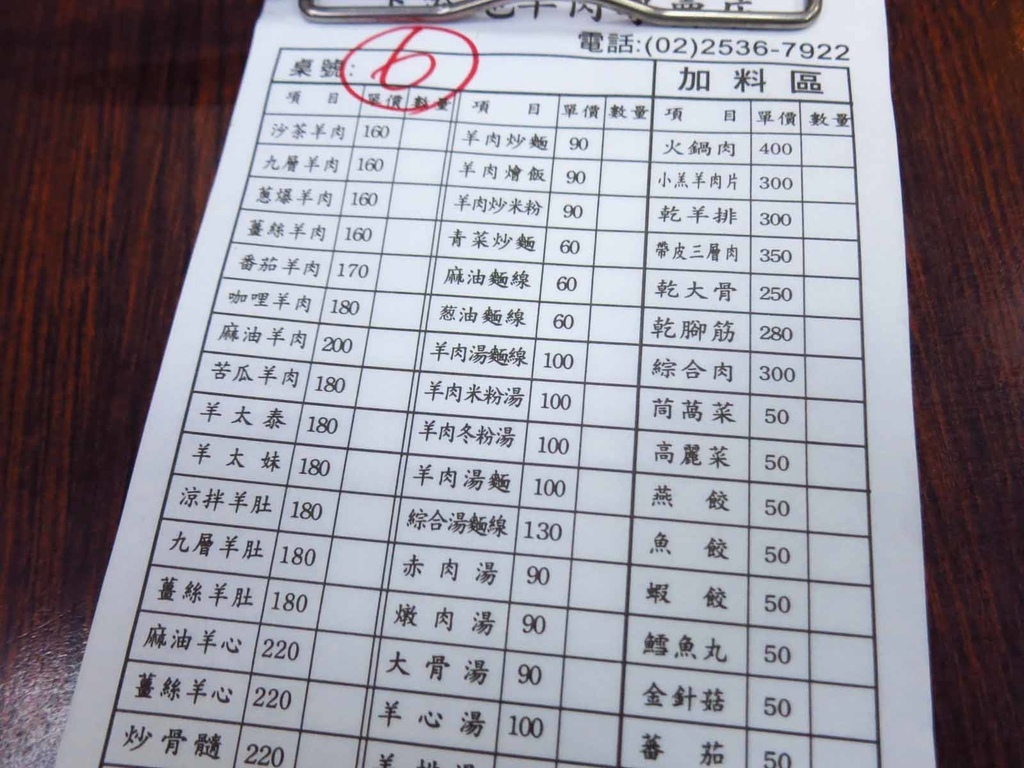 電話:(02)2536-7922
桌號: 6 加料區
項目 單價 數量 項目 單價 數量 項目 單價 數量
沙茶羊肉 160 羊肉炒麵 90 火鍋肉 400
九層羊肉 160 羊肉燴飯 90 小羔羊肉片 300
蔥爆羊肉 160 羊肉炒米粉 90 乾羊排 300
薑絲羊肉 160 青菜炒麵 60 帶皮三層肉 350
番茄羊肉 170 麻油麵線 60 乾大骨 250
咖哩羊肉 180 葱油麵線 60 乾腳筋 280
麻油羊肉 200 羊肉湯麵線 100 綜合肉 300
苦瓜羊肉 180 羊肉米粉湯 100 茼萵菜 50
羊太泰 180 羊肉冬粉湯 100 高麗菜 50
羊太妹 180 羊肉湯麵 100 燕餃 50
涼拌羊肚 180 綜合湯麵線 130 魚餃 50
九層羊肚 180 赤肉湯 90 蝦餃 50
薑絲羊肚 180 燉肉湯 90 鱈魚丸 50
麻油羊心 220 大骨湯 90 金針菇 50
薑絲羊心 220 羊心湯 100 蕃茄 50
炒骨髓 220